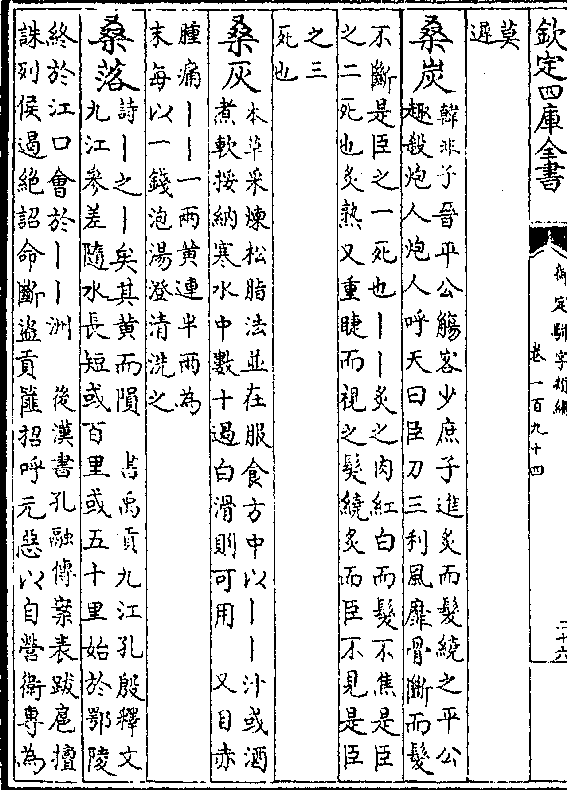 欽定四庫全書
御定駢字類編
卷一百九十四
三十六
莫
遲
桑炭
韓非子晉平公觴客少庶子進炙而髮繞之平公
趣殺炮人炮人呼天曰臣刀三利風靡骨斷而髮
不斷是臣之一死也丨丨炙之肉紅白而髮不焦是臣
之二死也炙熟又重睫而視之髮繞炙而臣不見是臣
之三
死也
桑灰
本草采煉松脂法並在服食方中以丨丨汁或酒
煮軟挼納寒水中數十過白滑則可用　又目赤
腫痛丨丨一兩黄連半兩為
末每以一錢泡湯澄清洗之
桑落
詩丨之丨矣其黄而隕　書禹貢九江孔殷釋文
九江參差隨水長短或百里或五十里始於鄂陵
終於江口會於丨丨洲　後漢書孔融傳案表跋扈擅
誅列侯遏絶詔命斷盜貢篚招呼元惡以自營衛專為